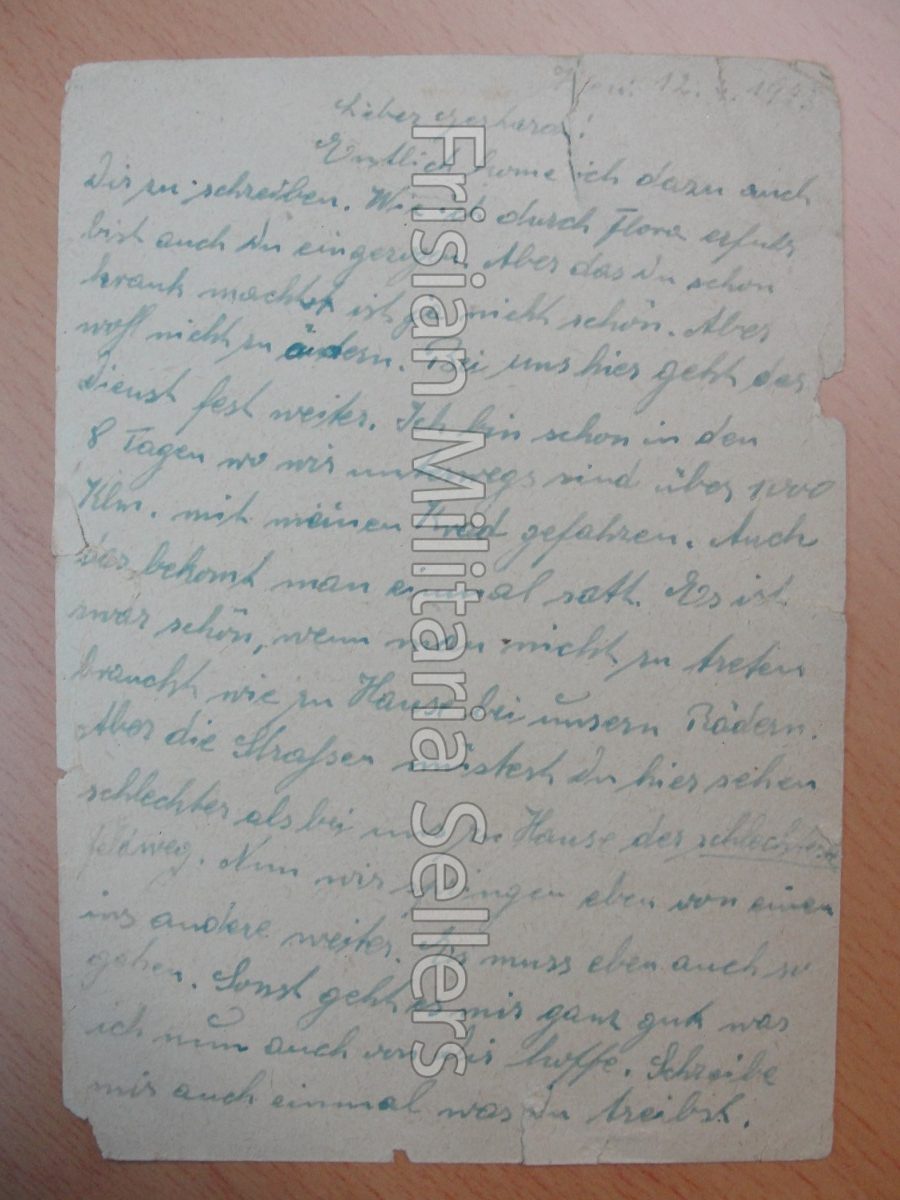 12. 19
Lieber Gerhard!
Entlich kome ich dazu auch
Dir zu schreiben. Wie ich durch Flora erfuhr
bist auch Du eingezogen. Aber das Du schon
krank machst ist gar nicht schön. Aber
wohl nicht zu ändern. Bei uns hier geht der
Dienst fest weiter. Ich bin schon in den
8 Tagen wo wir unterwegs sind über 1000
Klm. mit meinen Krad gefahren. Auch
das bekomt man einmal satt. Es ist
zwar schön, wenn man nicht zu treten
braucht wie zu Hause bei unsern Rädern.
Aber die Strassen müstest Du hier sehen
schlechter als bei uns zu Hause der schlechteste
Feldweg. Nun wir springen eben von einen
ins andere weiter. Es muss eben auch so
gehen. Sonst geht es mir ganz gut was
ich nun auch von Dir hoffe. Schreibe
mir auch einmal was Du treibst.
Frisian Militaria Sellers